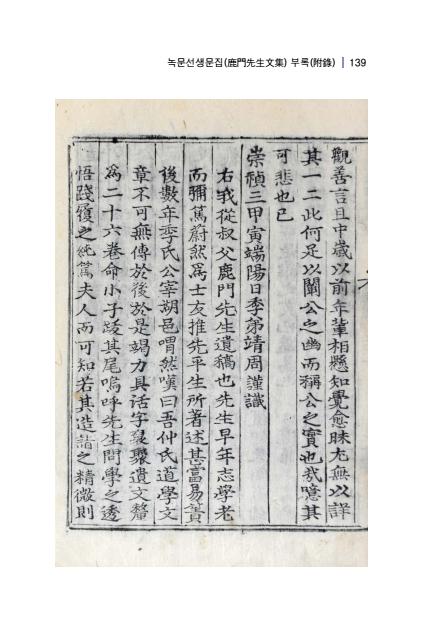 녹문선생문집(鹿門先生文集) 부록(附錄) | 139
觀善言且中歲以前年輩相懸知覺愈昧尤無以詳
其一二此何足以闡公之幽而稱公之實也哉噫其
可悲也已
崇禎三甲寅端陽日季弟靖周謹識
右我從叔父鹿門先生遺稿也先生早年志學老
而彌篤蔚然爲士友推先平生所著述甚富易簀
後數年季氏公宰湖邑喟然嘆曰吾仲氏道學文
章不可無傳於後於是竭力具活字裒聚遺文釐
爲二十六卷命小子跋其尾嗚呼先生問學之透
悟踐履之純篤夫人而可知若其造詣之精微則